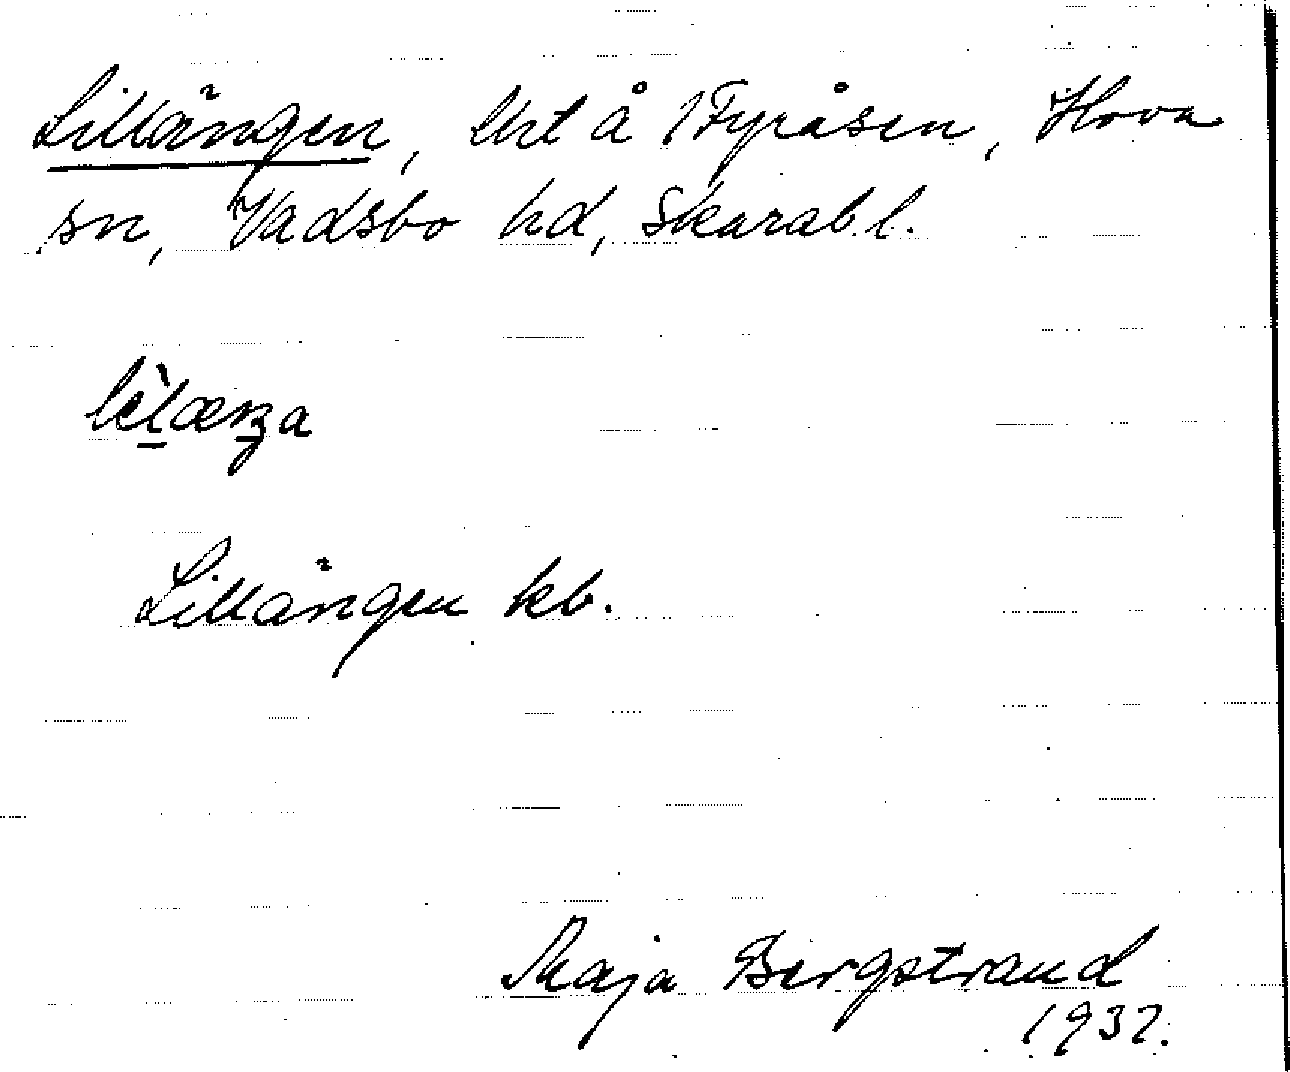 Lillängen, lht å Fyråsen, Hova
sn, Vadsbo hd, Skarab.l.
Lillängen kb.
Maja Bergstrand
1937.